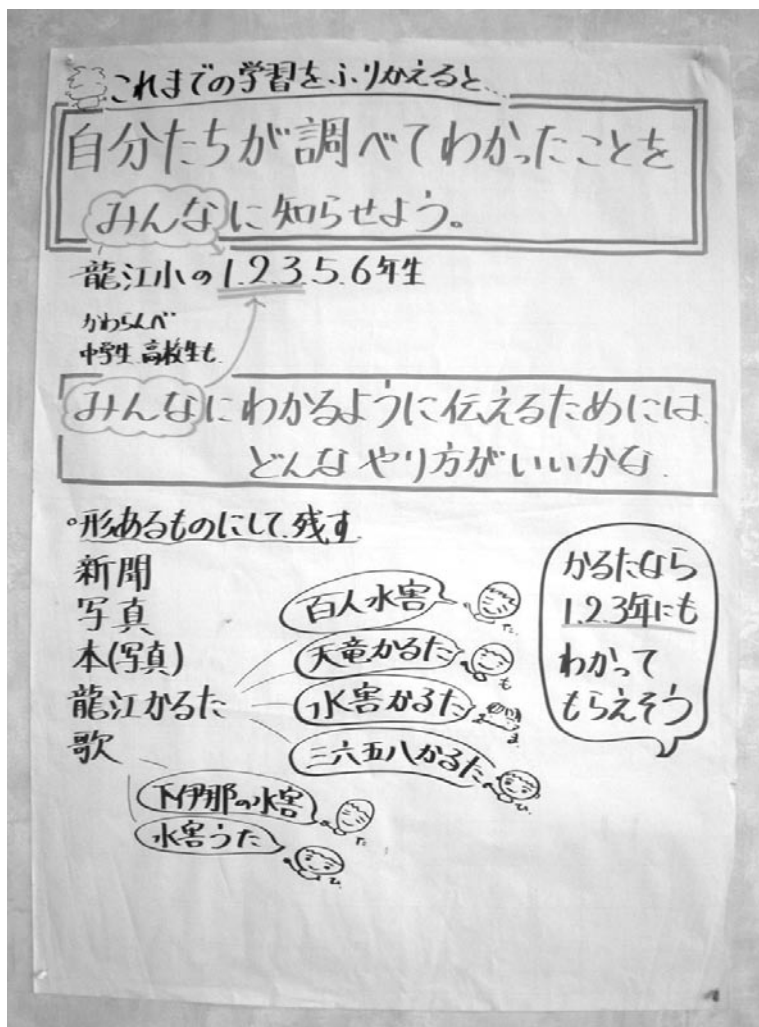 これまでの学習をふりかえると…
自分たちが調べてわかったことを
みんなに知らせよう。
龍江小の1.2.3.5.6年生
かわらんべ
中学生 高校生も
みんなにわかるように伝えるためには
どんなやり方がいいかな
・形あるものにして残す
新聞
写真
本(写真)
龍江かるた
歌
百人水害
た
天竜かるた
も
水害かるた
ま
三六五八かるた
ひ
下伊那の水害
た
水害うた
ひ
かるたなら
1.2.3年にも
わかって
もらえそう